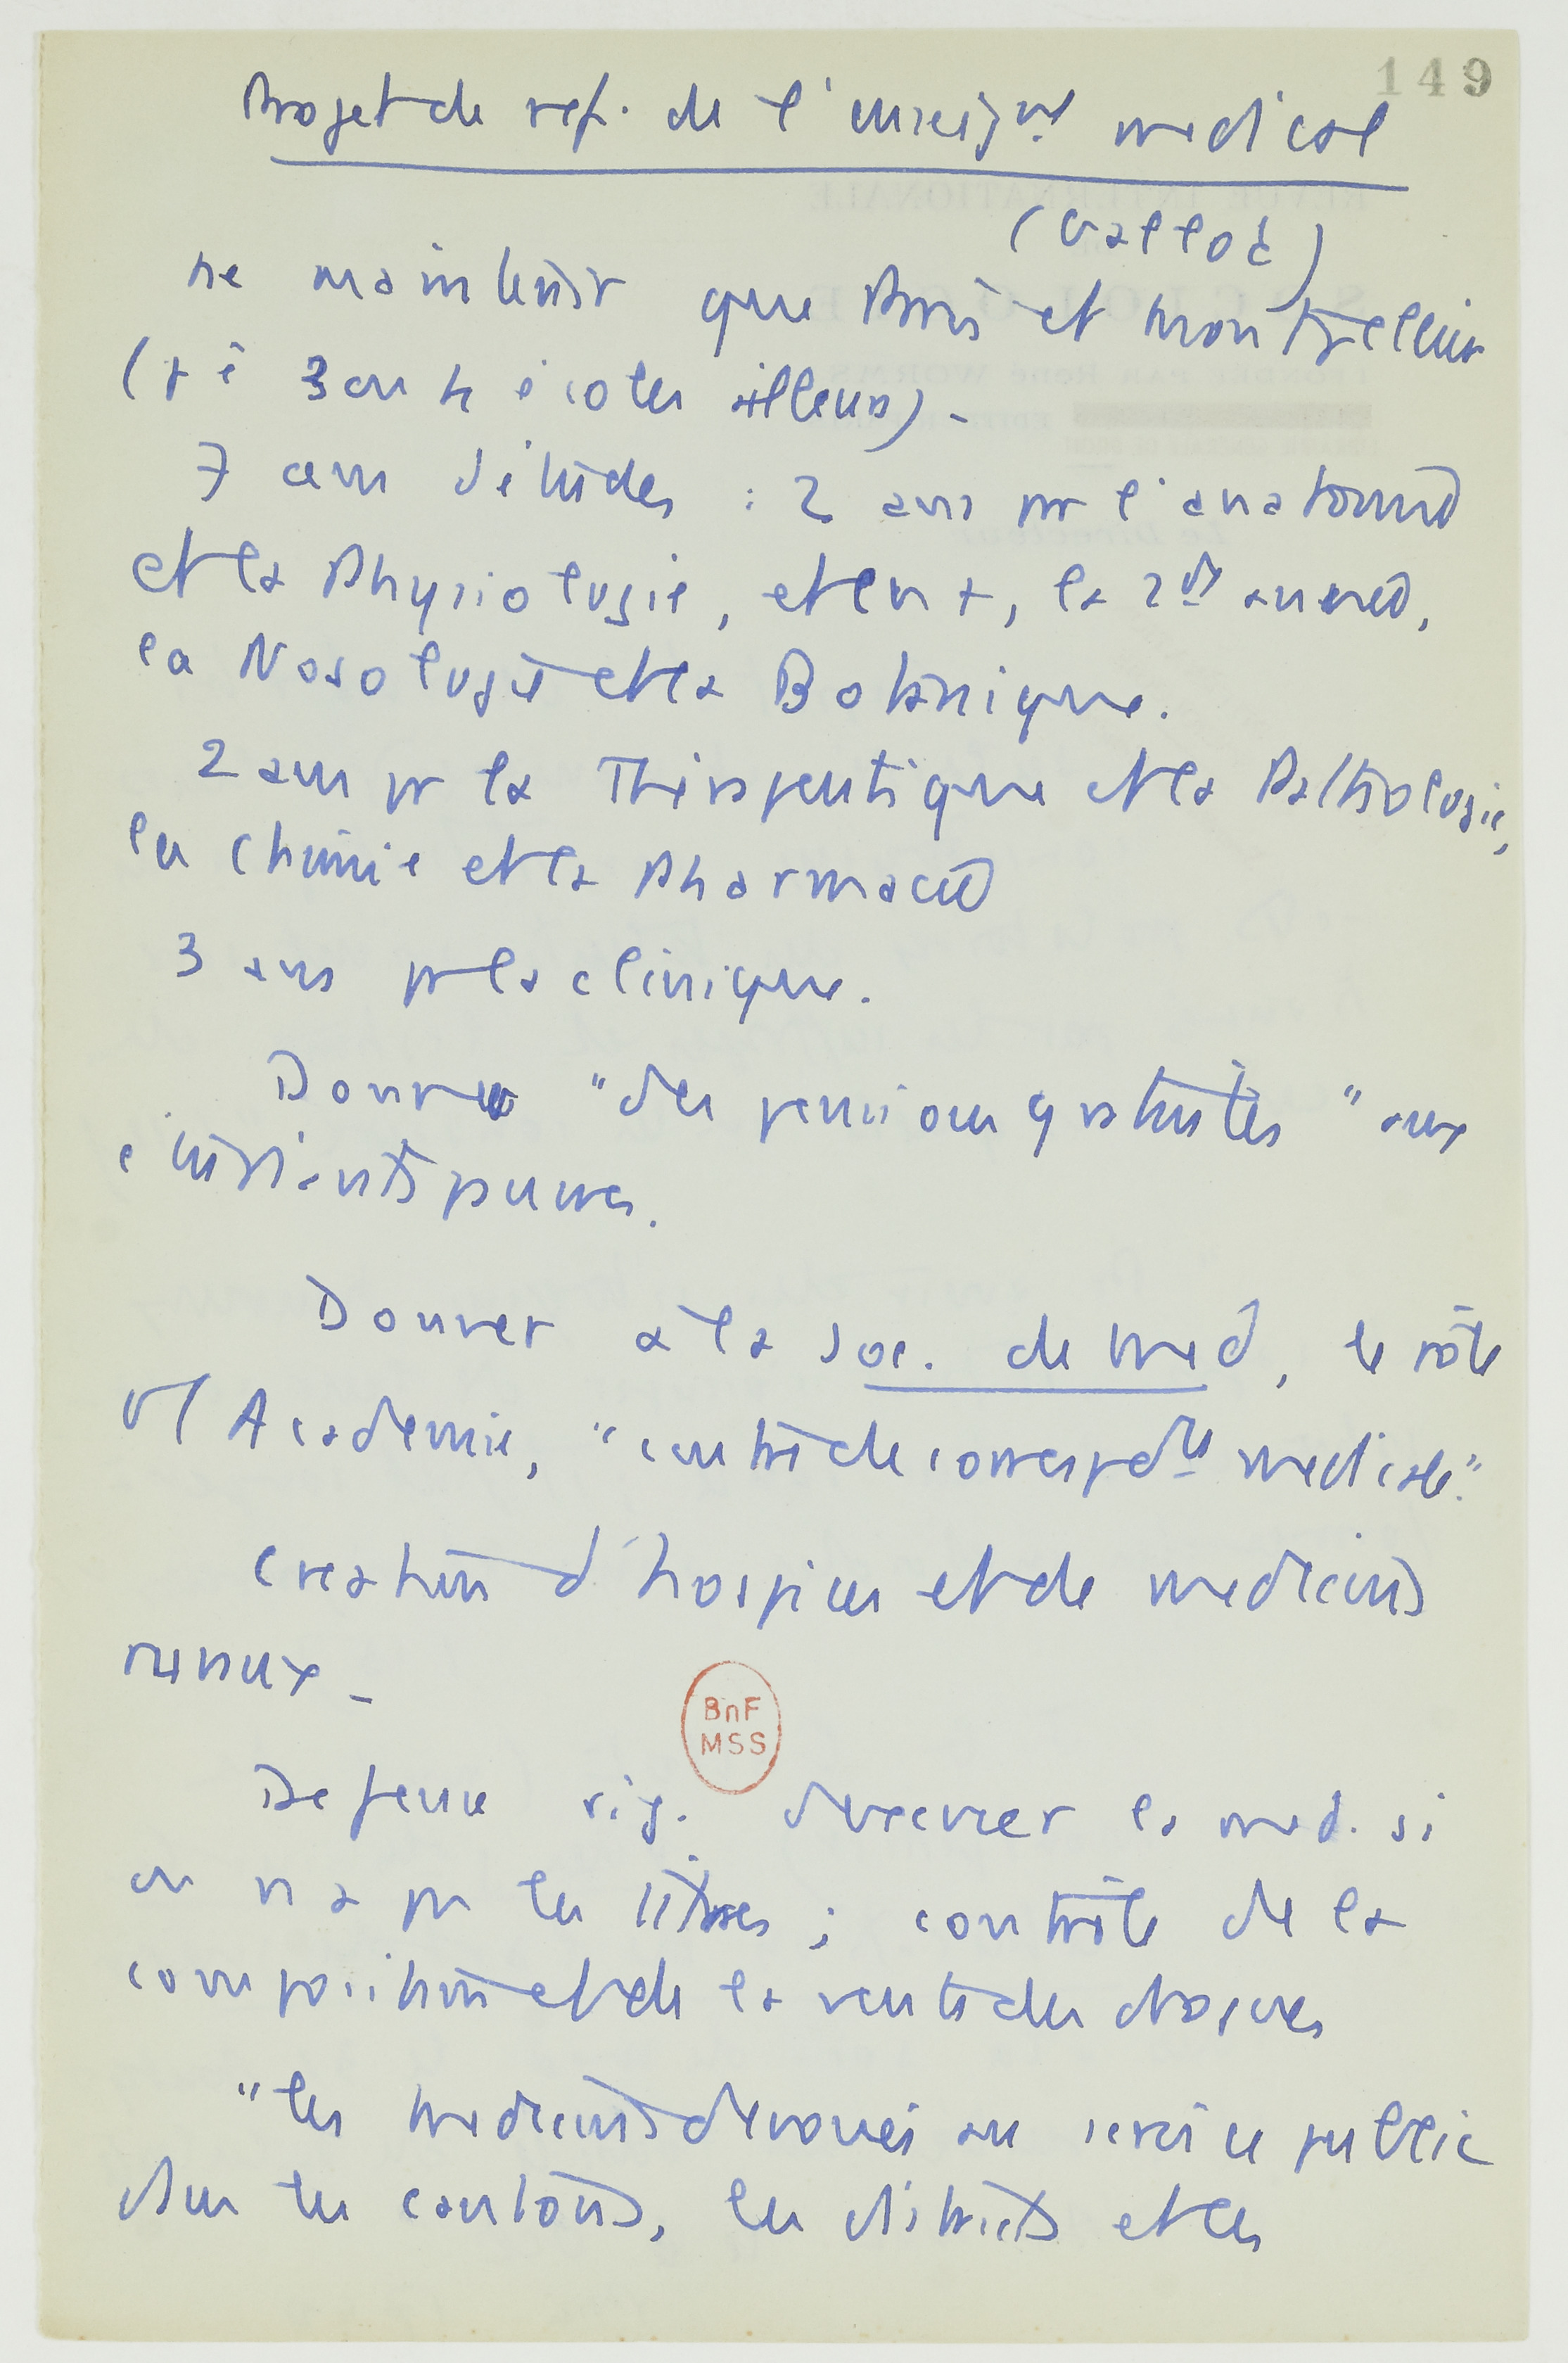 149
Projet de ref. de l'enseignt medical
(Gallot)
ne maintenir que Paris et Montpellier
(+ 3 ou 4 écoles ailleurs).
7 ans d'études : 2 ans pr l'anatomie
et la Physiologie, et en +, la 2de année,
la Nosologie et la Botanique.
2 ans pr la Thérapeutique et la Pathologie,
la Chimie et la Pharmacie
3 ans pr la clinique.
Donner "des pensions gratuites" aux
étudiants pauvres.
Donner à la soc. de med, le rôle
d'1 Academie, "centre de correspdce medicale".
Creation d'hospices et de medecins
ruraux -
Defense rig. d'exercer la med. si
on n'a pas les titres ; contrôle de la
composition et de la vente des drogues
"les medecins devoués au service public
dans les cantons, les districts et les
BnF
MSS